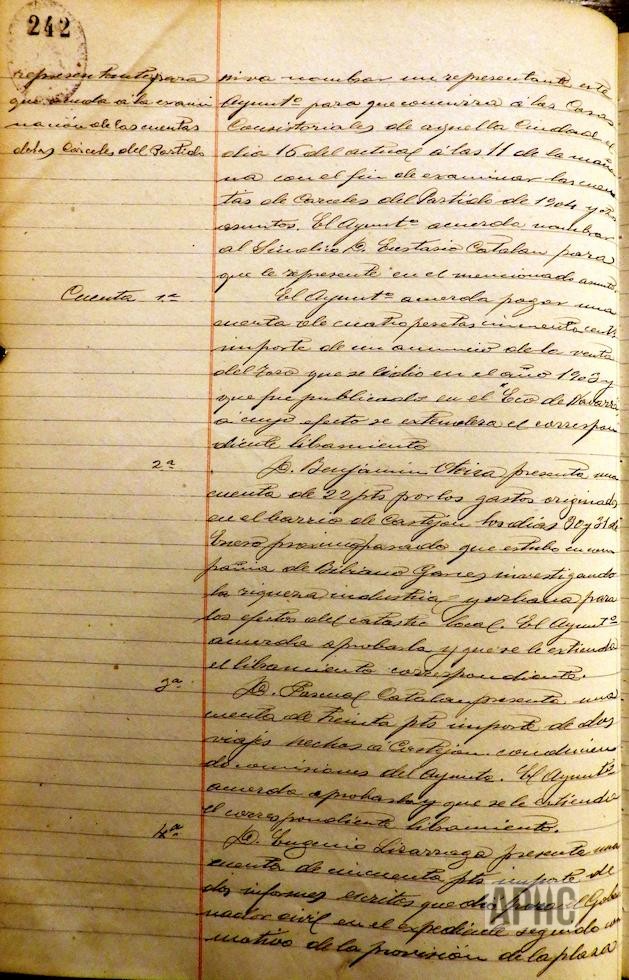 242
representante para
que acuda á la exami
nación de las cuentas
de las Cárceles del Partido
niva nombrar un representante este
Ayuntº para que concurra á las Casas
Consistoriales de aquella Ciudad el
dia 16 del actual á las 11 de la maña
na con el fin de examinar las cuen
tas de Cárceles del Partido de 1904 y otros
asuntos. El Ayuntº acuerda nombrar
al Sindico D. Eustasio Catalan para
que le represente en el mencionado asunto
Cuenta 1ª
El Ayuntº acuerda pagar una
cuenta de cuatro pesetas cincuenta cents
importe de un anuncio de la venta
del Toro que se lidió en el año 1903 y
que fue publicado en el "Eco de Navarra
á cuyo efecto se extenderá el correspon
diente libramiento
2ª
D. Benjamin Oteiza presenta una
cuenta de 22 pts por los gastos originados
en el barrio de Castejon los dias 30 y 31 de
Enero proximo pasado que estubo en com
pañia de Bibiano Garces investigando
la riqueza industrial y urbana para
los efectos del catastro local. El Ayuntº
acuerda aprobarla y que se le extienda
el libramiento correspondiente.
3ª
D. Pascual Catalan presenta una
cuenta de treinta pts importe de dos
viajes hechos a Castejon conducien
do comisiones del Ayunto. El Ayuntº
acuerda aprobarla y que se le extienda
el correspondiente libramiento.
4ª
D. Eugenio Lizarraga presenta una
cuenta de cincuenta pts importe de
dos informes escritos que dio para el Gober
nador civil en el expediente seguido con
motivo de la provisión de la plaza
APHC